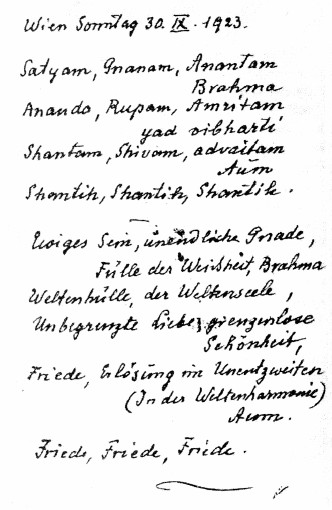 Wien Sonntag 30. IX. 1923.
Satyam, Gnanam, Anantam
Brahma
Anando, Rupam, Amritam
yad vibharti
Shantam, Shivam, advaitam
Aum
Shantih, Shantih, Shantih.
Ewiges Sein, unendliche Gnade,
Fülle der Weisheit, Brahma
Weltenhülle, der Weltenseele,
Unbegrenzte Liebe, grenzenlose
Schönheit,
Friede, Erlösung im Unentzweiten
(In der Weltenharmonie)
Aum.
Friede, Friede, Friede.